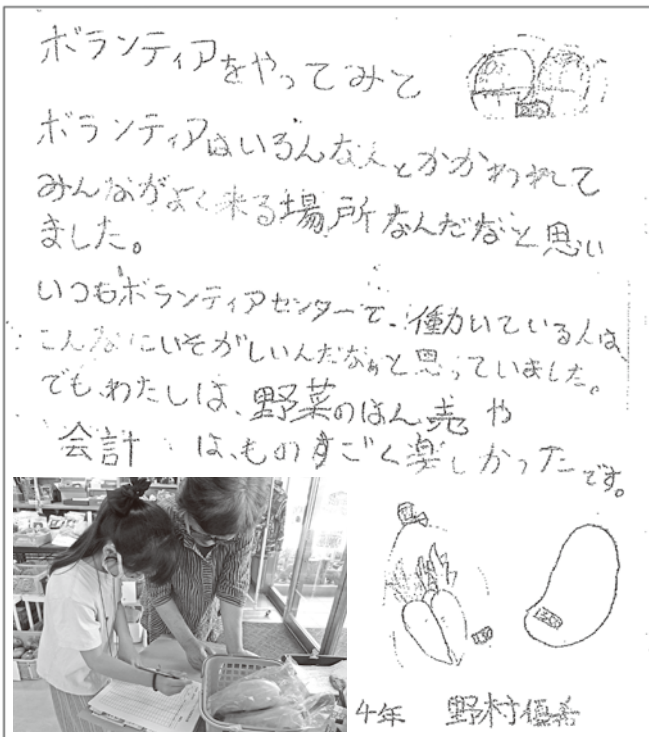 ボランティアをやってみて
ボランティアはいろんな人とかかわれて
みんながよく来る場所なんだなと思い
ました。
いつもボランティアセンターで、働いている人は、
こんなにいそがしいんだなぁと思っていました。
でも、わたしは、野菜のはん売や
会計は、ものすごく楽しかったです。
4年 野村優希